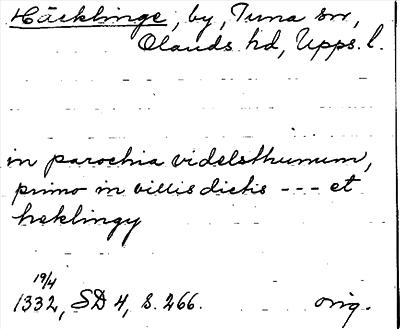 Häcklinge, by, Tuna sn,
Olands hd, Upps. l.
in parochia videlsthumum,
primo in villis dictis --- et
heklingy
19/4
1332, SD 4, s. 266. orig.